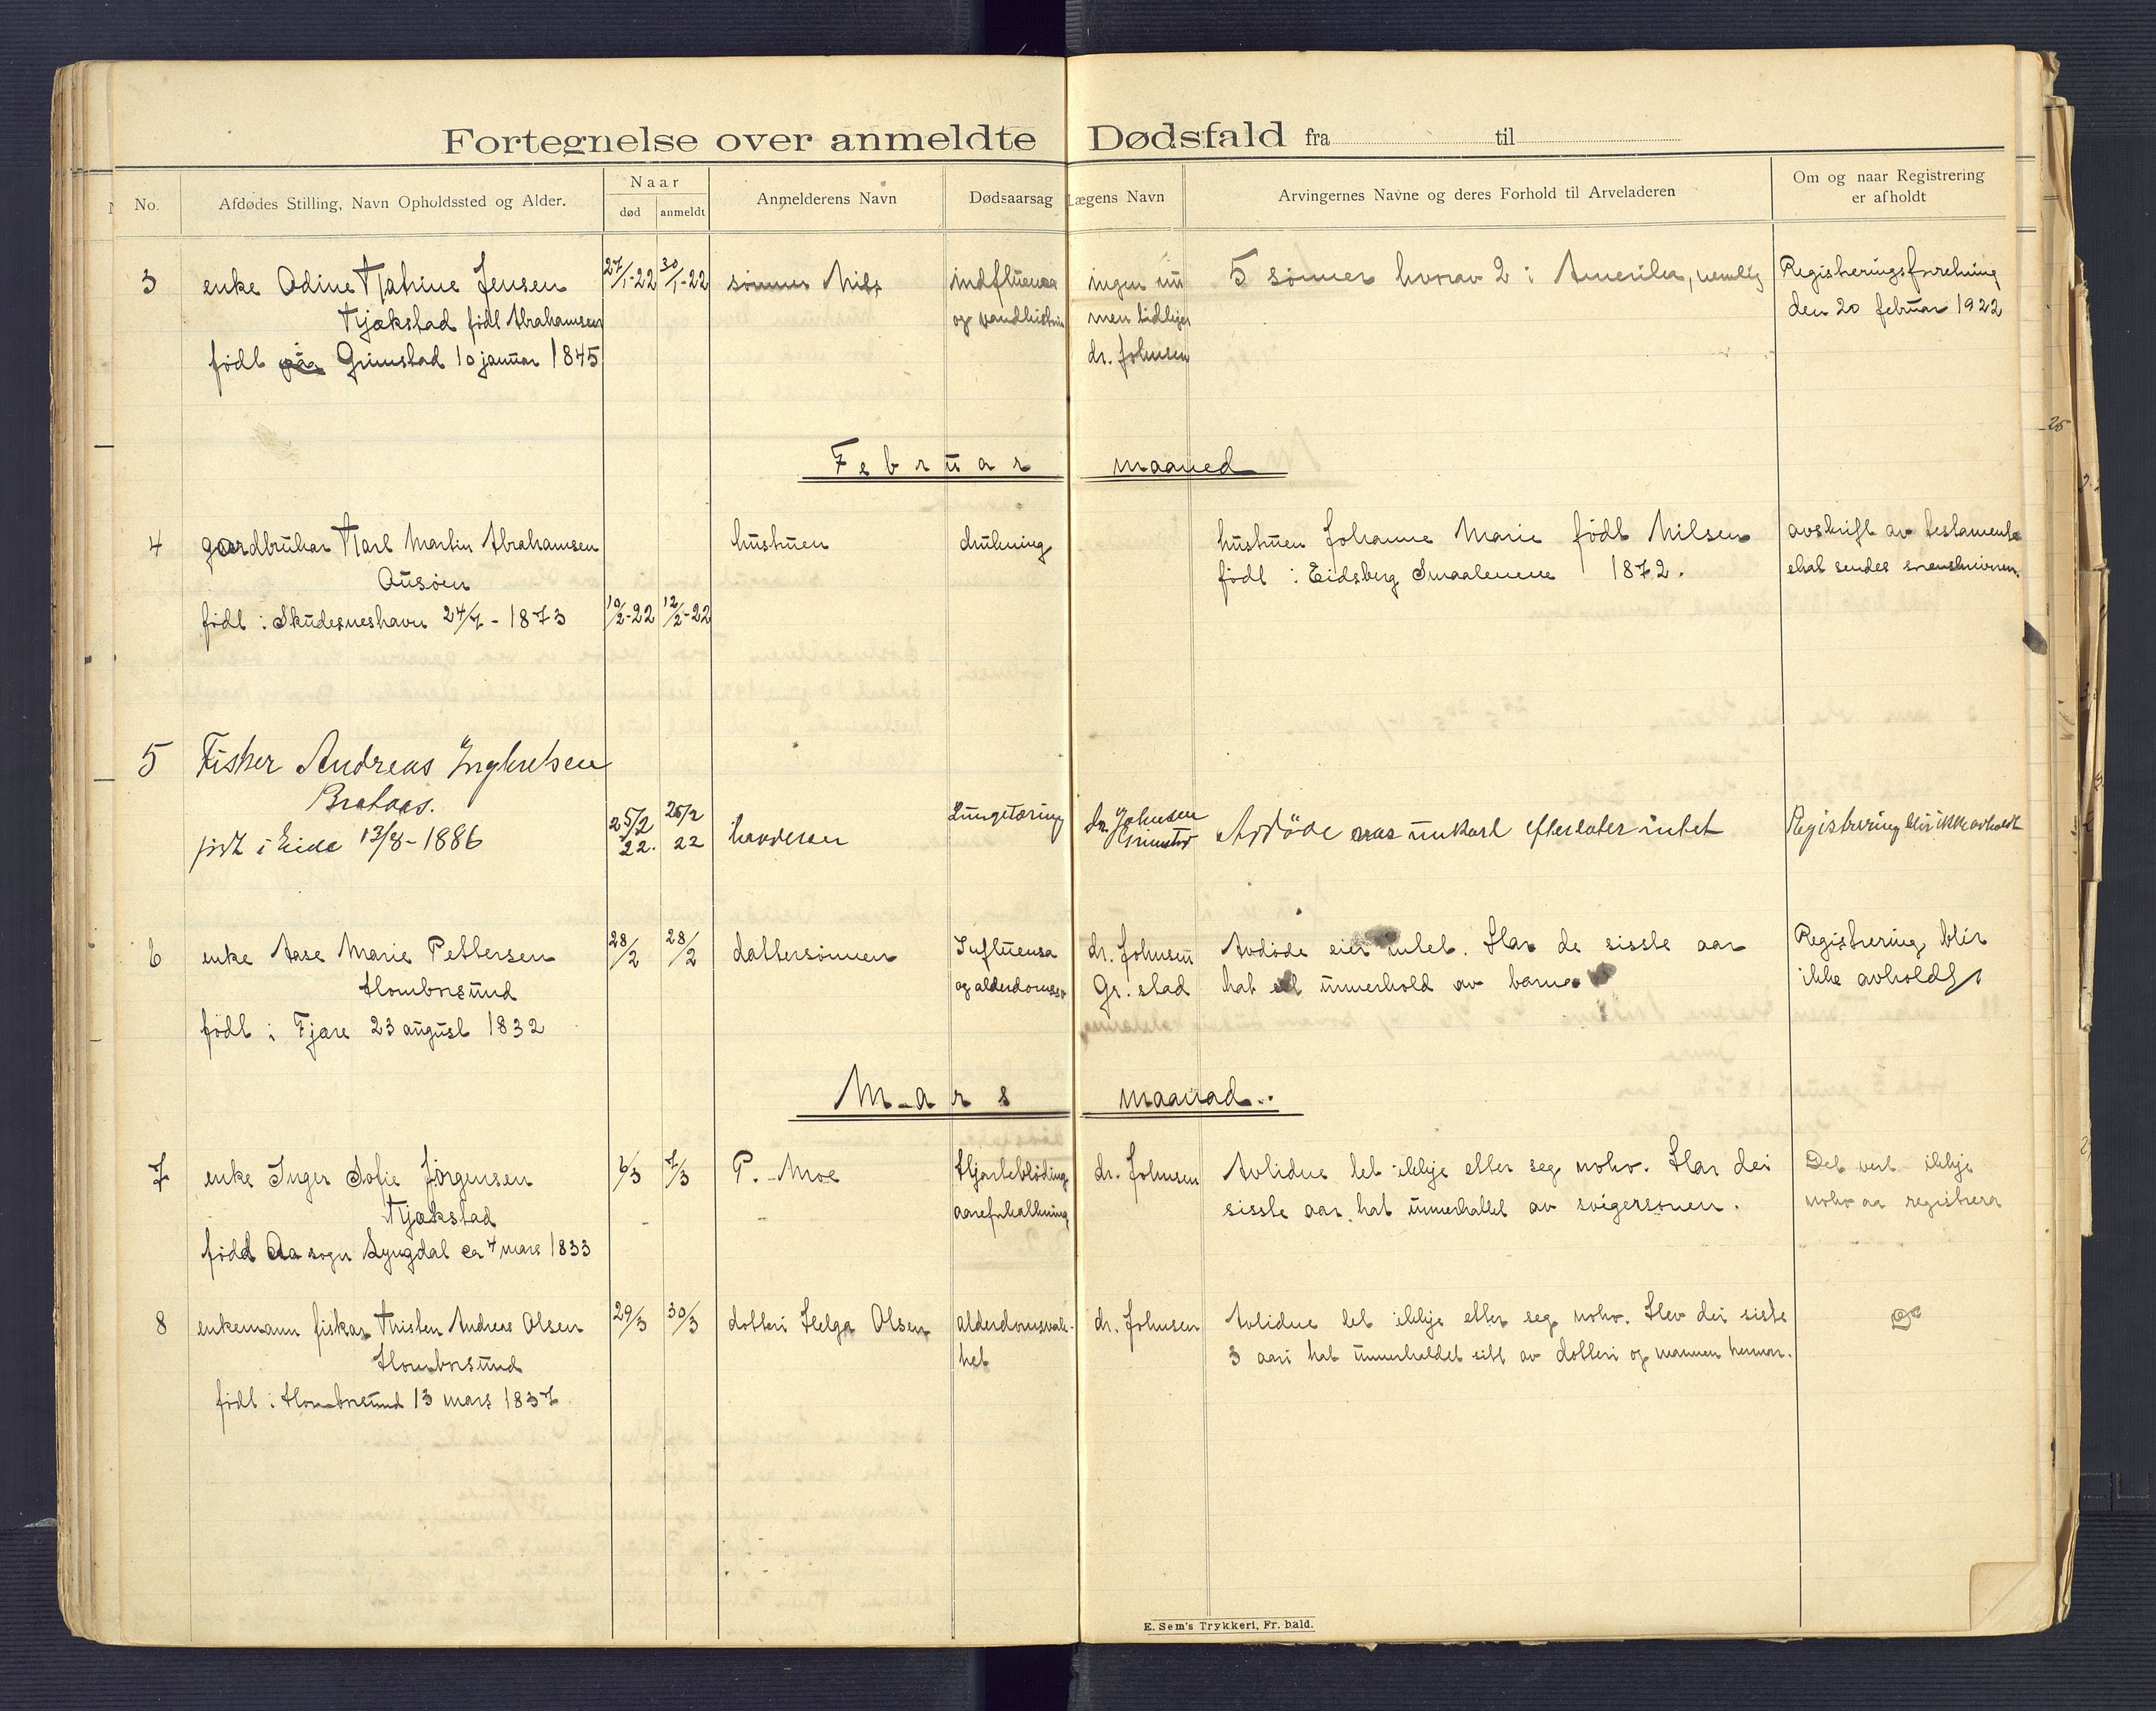 Fortegnelse over anmeldte Dødsfald fra til
No.
Afdødes Stilling, Navn Opholdssted og Alder.
Naar
død
anmeldt
Anmelderens Navn
Dødsaarsag
Lægens Navn
Arvingernes Navne og deres Forhold til Arveladeren
Om og naar Registrering
er afholdt
3
enke Odine Katrine Jensen
Kjækstad født Abrahamsen
født Grimstad 10 januar 1845
27/1-22
30/1-22
sønnen Nils
indfluensa
og
ingen nu
men tidliger
dr. Johnsen
5 sønner hvorav 2 i Amerika, nemlig
Registreringsforretning
den 20 februar 1922
Februar maaned
4
gaardbruker Karl Martin Abrahamsen
Ausøen
født i Skudesneshavn 24/7-1873
10/2-22
12/2-22
hustruen
drukning
hustruen Johanne Marie født Nilsen
født i Eidsberg Smaalenene 1872.
avskrift av testamente
skal sendes sorenskriveren.
5
Fisker Andreas Ingbretsen
Brataas.
født i Eide 13/8-1886
25/2
22.
26/2
22
Lungetæring
dr. Johnsen
Grimstad
Avdöde var unkarl efterlater intet
Registrering blir ikke avholdt
6
enke Aase Marie Pettersen
Homborsund
født i Fjære 23 august 1832
28/2
28/2
dattersønnen
Influensa
og alderdomss.
dr. Johnsen
Gr. stad
Avdøde eier intet. Har de sisste aar
hat sit unnerhold av barna
Registrering blir
ikke avholdt
Mars maanad..
7
enke Inger Sofie Jörgensen
Kjækstad
född Aa sogn Lyngdal ca 4 mars 1833
6/3
7/3
P. Moe
Hjarteblöding
aareforkalkning
dr. Johnsen
Avlidne let ikkje etter seg nokv. Har dei
sisste aar hat unnerhaldet av svigersonen.
Det vert ikkje
nokv aa registrera
8
enkemann fiskar Kristen Andreas Olsen
Homborsund
födt i Homborsund 13 mars 1837
29/3
30/3
dotteri Helga Olsen
alderdomsveik-
het
dr. Johnsen
Avlidne let ikkje etter seg nokv. Hev dei siste
3 aari hat unnerhaldet sitt av dotteri og mannen hennar.
Do
E. Sem's Trykkeri, Fr. hald.